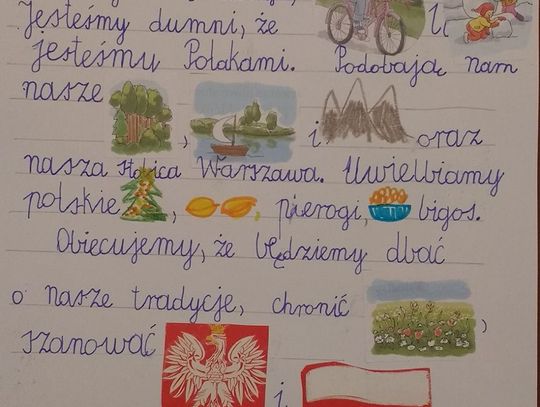 Jesteśmy dumni, że i
jesteśmy Polakami. Podobają nam
nasze , i oraz
nasza stolica Warszawa. Uwielbiamy
polskie , , pierogi, bigos.
Obiecujemy, że będziemy dbać
o nasze tradycje, chronić ,
szanować i